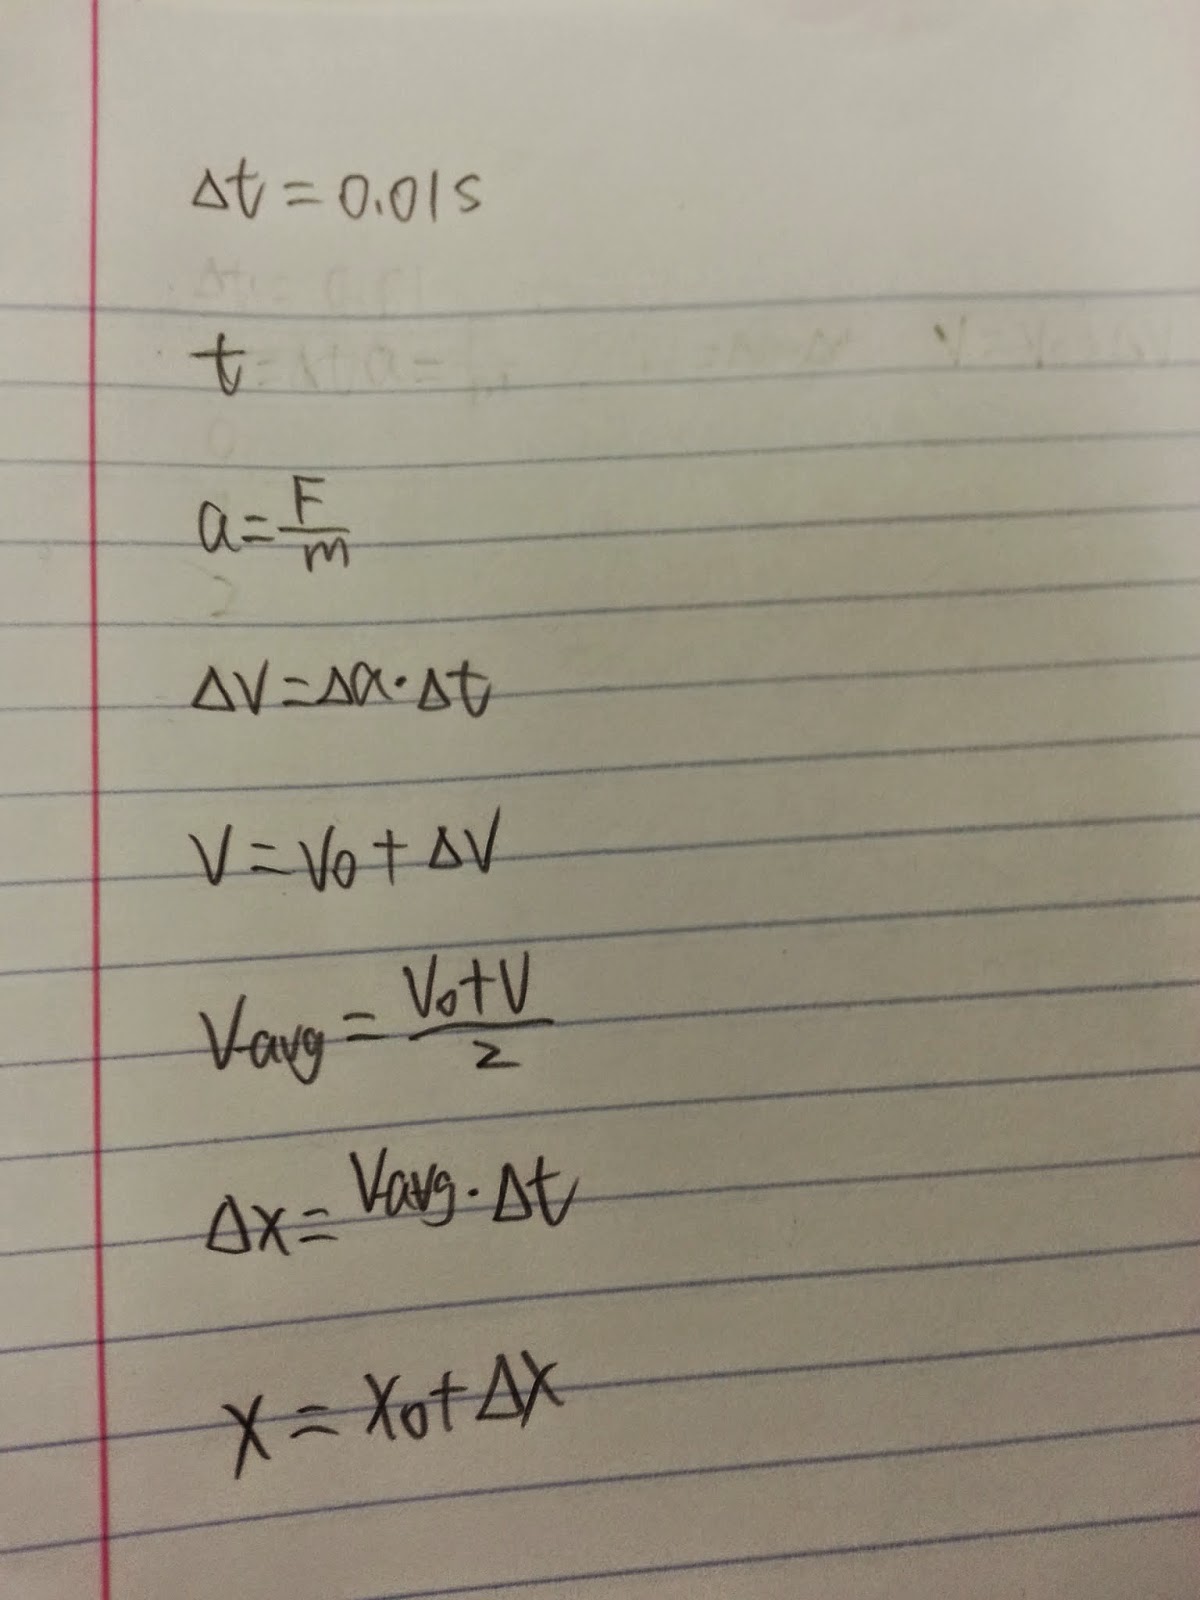 Δt = 0.01s
t
a = F/m
Δv = Δa · Δt
V = V₀ + ΔV
Vavg = (V₀ + V)/2
Δx = Vavg · Δt
X = X₀ + ΔX